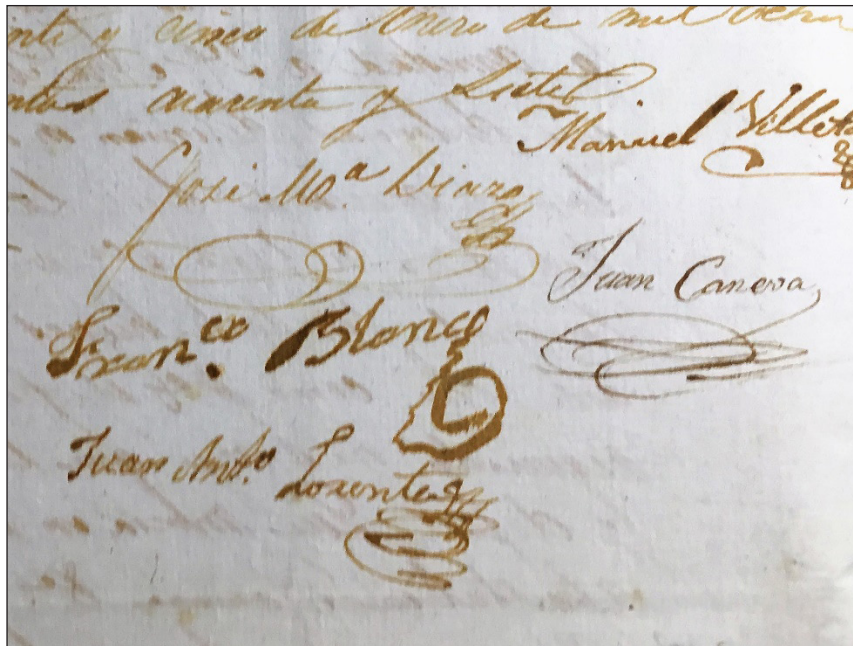 inte y cinco de Enero de mil ocho
entos cuarenta y siete
Manuel Villeta
José M.ª Diazo
Juan Canova
Fran.co Blanco
Juan Ant.º Lorente